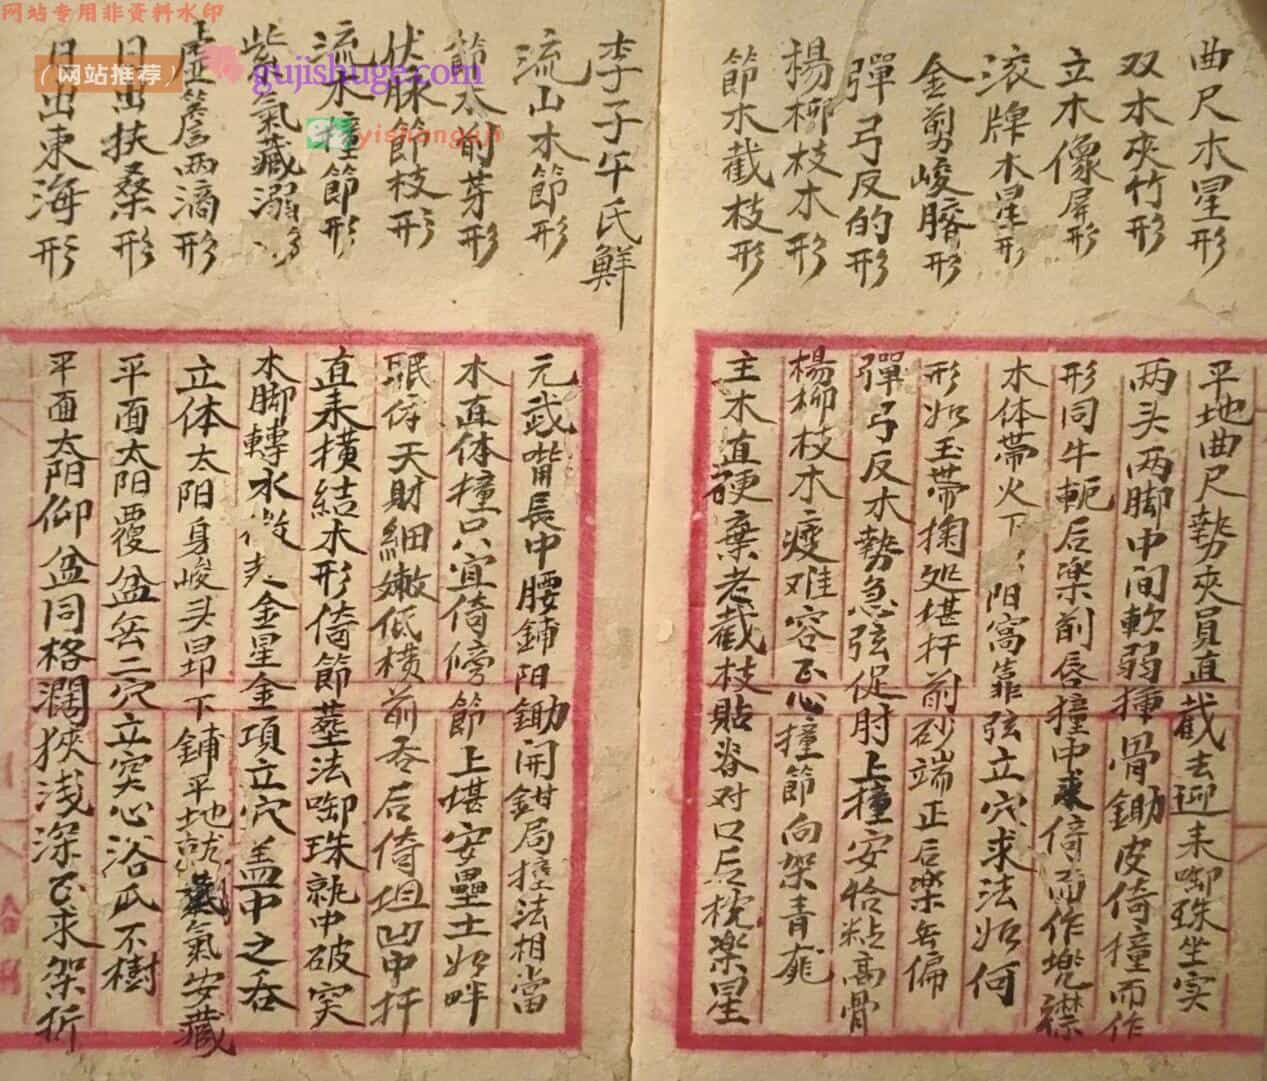 网站专用非资料水印
（网站推荐）
gujishuge.com
yishanguji
曲尺木星形
双木夾竹形
立木像屏形
滚牌木星形
金剪峻膪形
彈弓反的形
楊柳枝木形
節木截枝形
平地曲尺勢夾員直截去迎来啣珠坐实
两头两脚中间軟弱撞骨鋤皮倚撞而作
形同牛軛后楽前唇撞中求倚而作兠襟
木体帶火下阳窩靠弦立穴求法如何
形如玉帶掬処堪扦前砂端正后楽無偏
彈弓反木勢急弦促肘上撞安恰粘高骨
楊柳枝木瘦难容正心撞節向架青龍
主木直硬棄老截枝貼脊对口后枕楽星
李子午氏鮮
流山木節形
節木前芽形
伏脉節枝形
流木撞節形
紫氣藏溺形
虚簷两滴形
日出扶桑形
日出東海形
元武嘴長中腰鋪阳鋤开鉗局撞法相當
木直体撞只宜倚傍節上堪安壘土如畔
眠倚天財細嫩低横前吞后倚坦凹中扦
直来横結木形倚節塟法啣珠就中破突
木脚轉水金星金項立穴盖中之吞
立体太阳身峻头昻下鋪平地就氣安藏
平面太阳覆盆無二穴立突心浴瓜不樹
平面太阳仰盆同格濶狹浅深正求架折